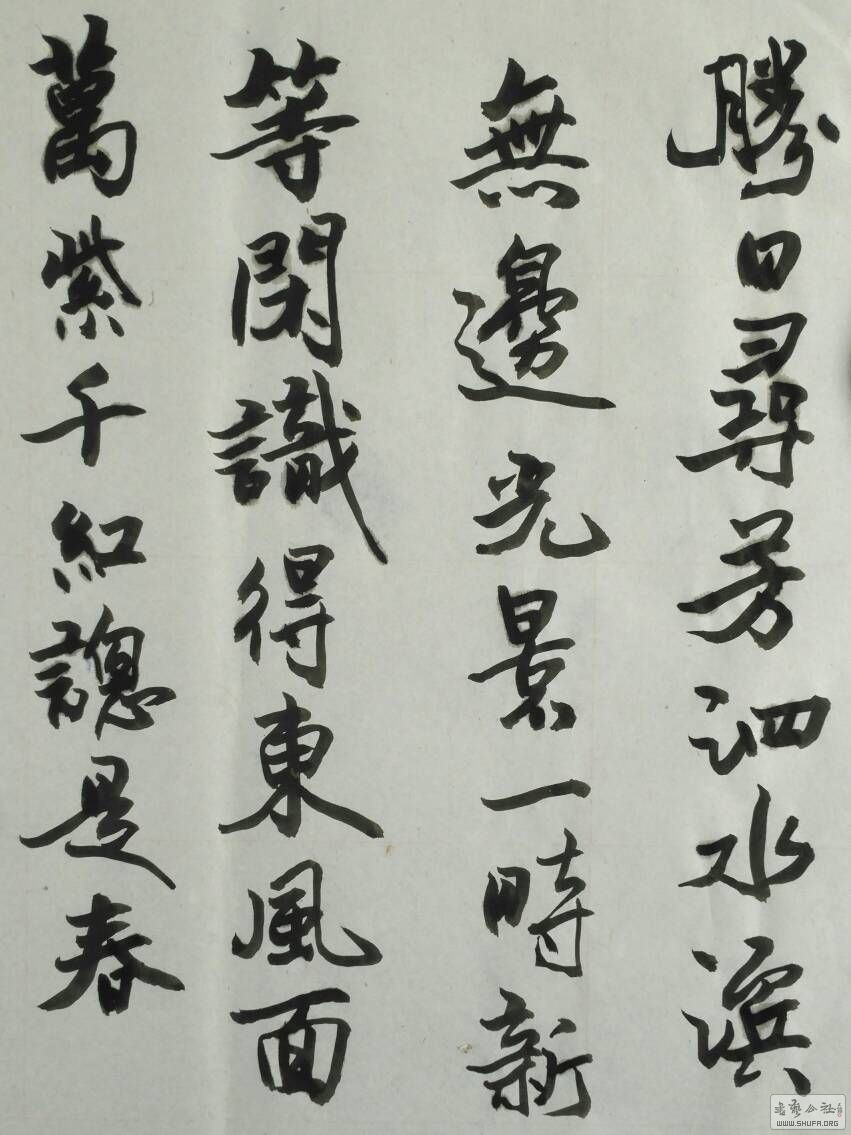 勝日尋芳泗水濱
無邊光景一時新
等閑識得東風面
萬紫千紅總是春
書藝公社
WWW.SHUFA.ORG